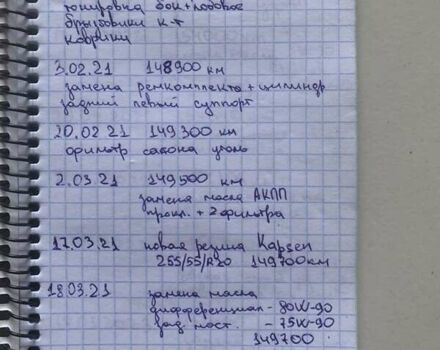 тонировка бок+лобовое
брызговики к-т
коврики
3.02.21 148900 км
замена ремкомплекта+цилиндр
задний левый суппорт
20.02.21 149300 км
фильтр салона уголь
2.03.21 149500 км
замена масла АКПП
прокл. + 2 фильтра
17.03.21 новая резина Kapsen
255/55/R20 149700км
18.03.21 замена масла
дифференциал - 80W-90
зад. мост. - 75W-90
149700